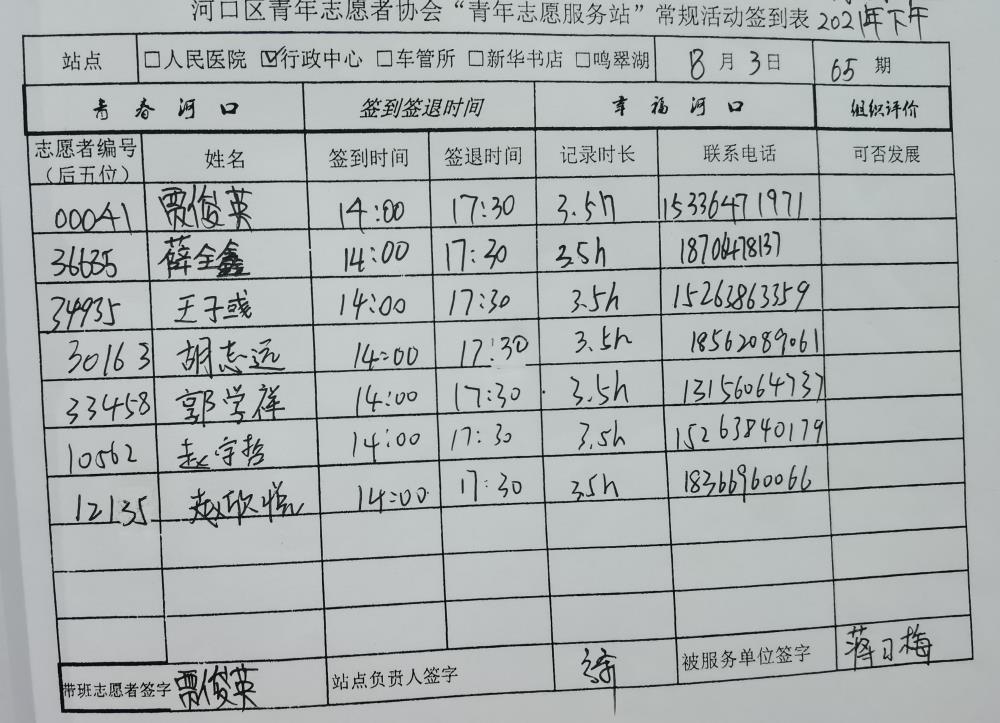 河口区青年志愿者协会“青年志愿服务站”常规活动签到表 2021年下午
站点 □人民医院 ☑行政中心 □车管所 □新华书店 □鸣翠湖 8月3日 65期
青春河口 签到签退时间 幸福河口 组织评价
志愿者编号（后五位） 姓名 签到时间 签退时间 记录时长 联系电话 可否发展
00041 贾俊英 14:00 17:30 3.5h 15336471971
36635 薛全鑫 14:00 17:30 3.5h 1870478137
34935 王子彧 14:00 17:30 3.5h 15263863359
30163 胡志远 14:00 17:30 3.5h 18562089061
33458 郭学祥 14:00 17:30 3.5h 13156064737
10562 赵宇哲 14:00 17:30 3.5h 15263840179
12135 赵欣悦 14:00 17:30 3.5h 18366960066
带班志愿者签字 贾俊英 站点负责人签字 被服务单位签字 蒋日梅